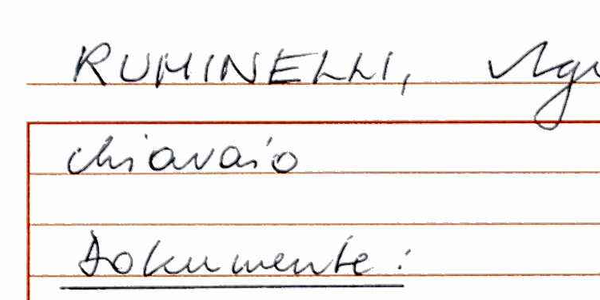 RUMINELLI,
chiavaio
Dokumente: